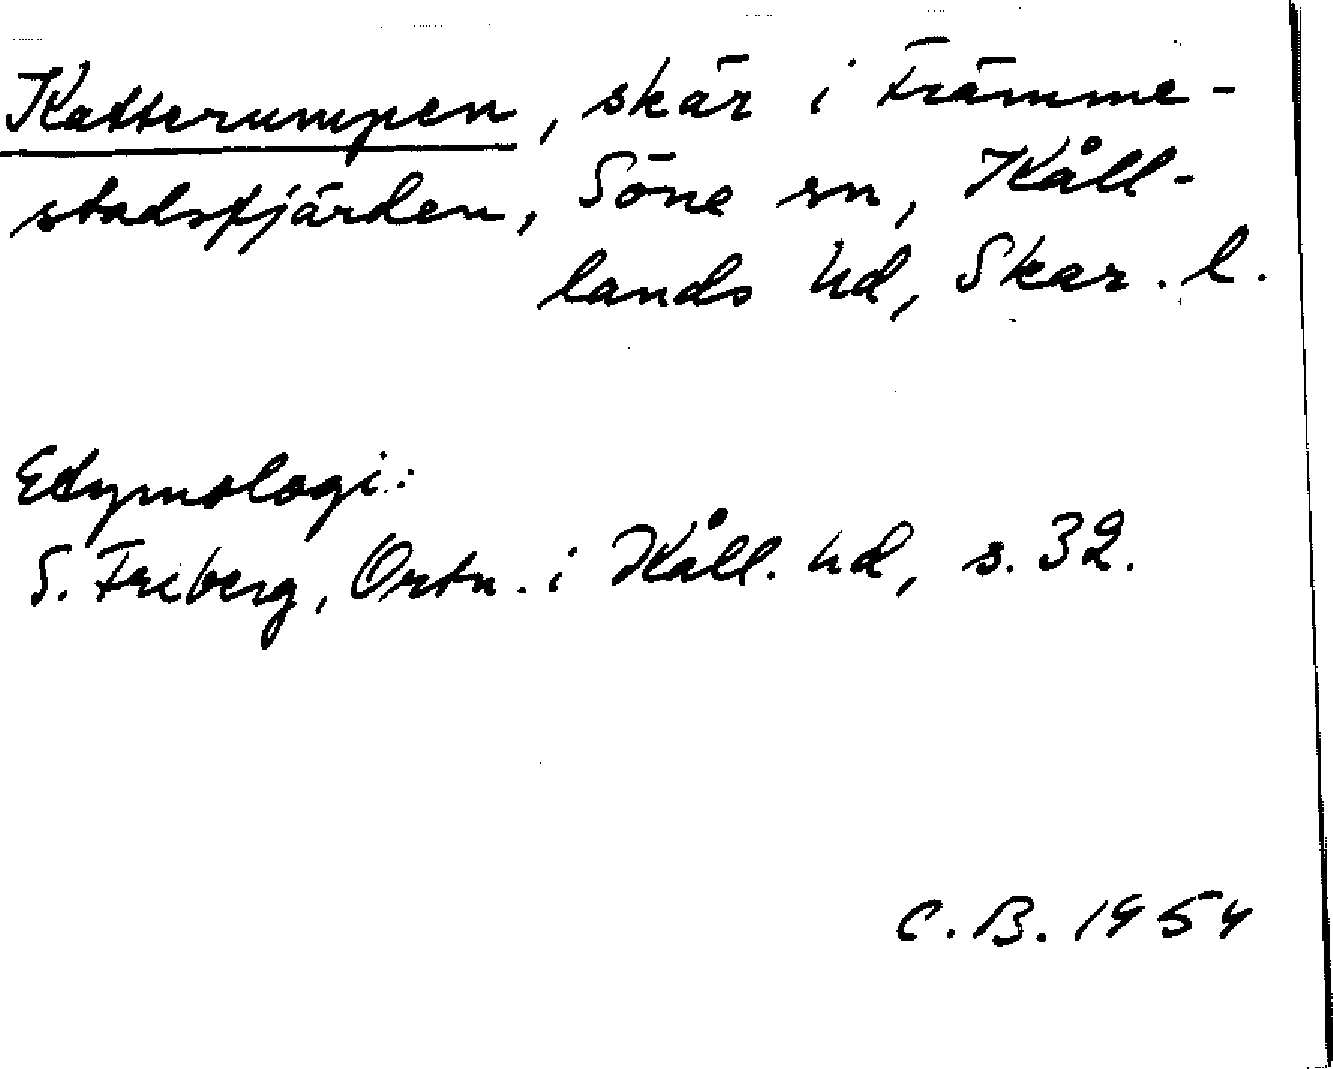 Katterumpen, skär i Främme-
stadsfjärden, Söne sn, Kåll-
lands hd, Skar. l.
Etymologi:
S. Friberg, Ortn. i Kåll. hd, s. 32.
C. B. 1954